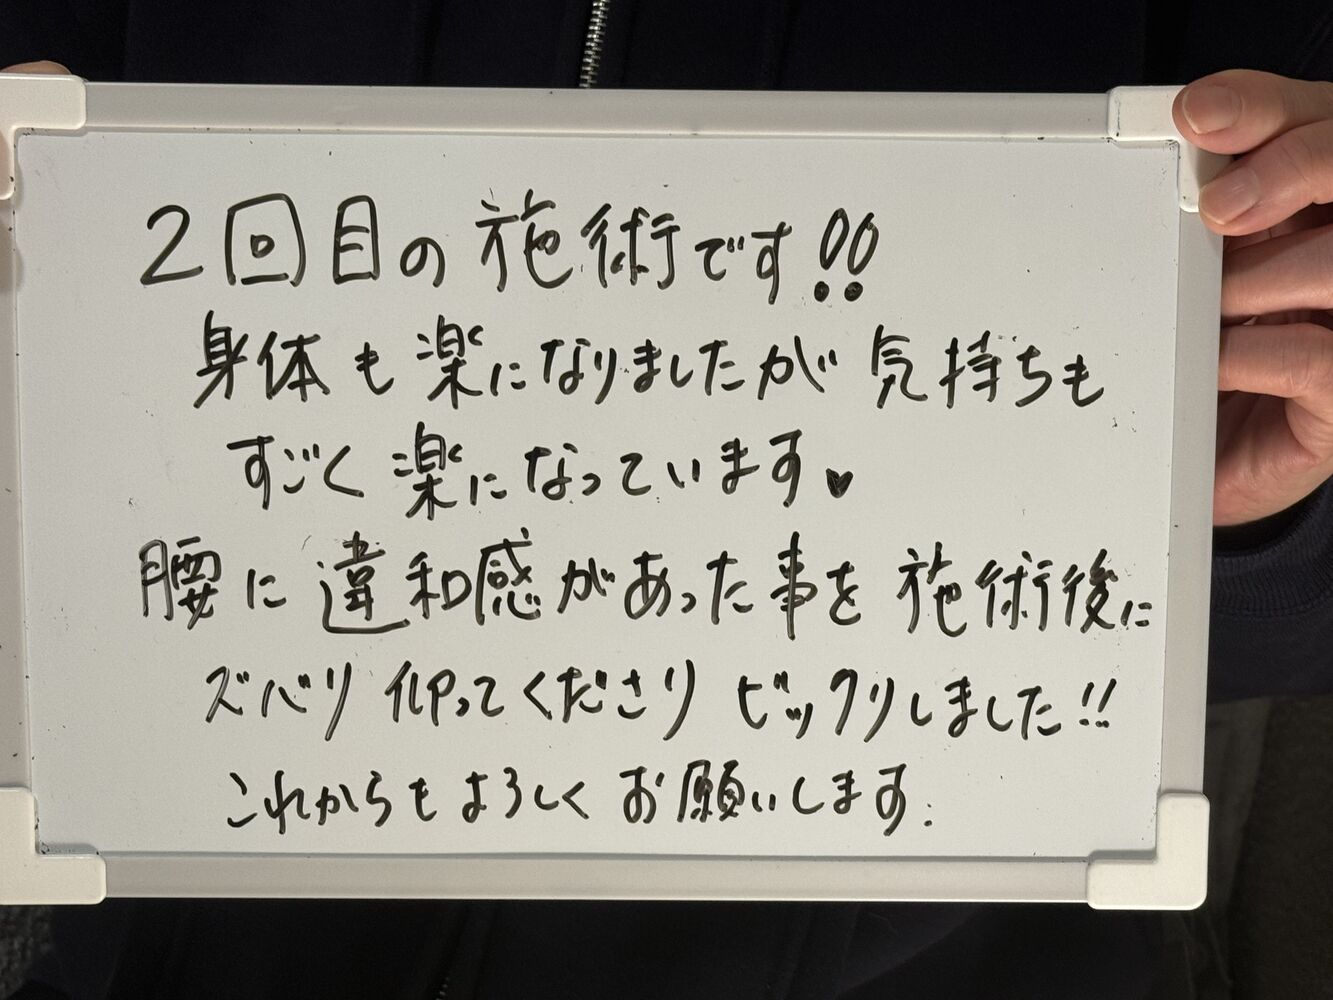 2回目の施術です!!
身体も楽になりましたが気持ちも
すごく楽になっています♥
腰に違和感があった事を施術後に
ズバリ仰ってくださりビックリしました!!
これからもよろしくお願いします.